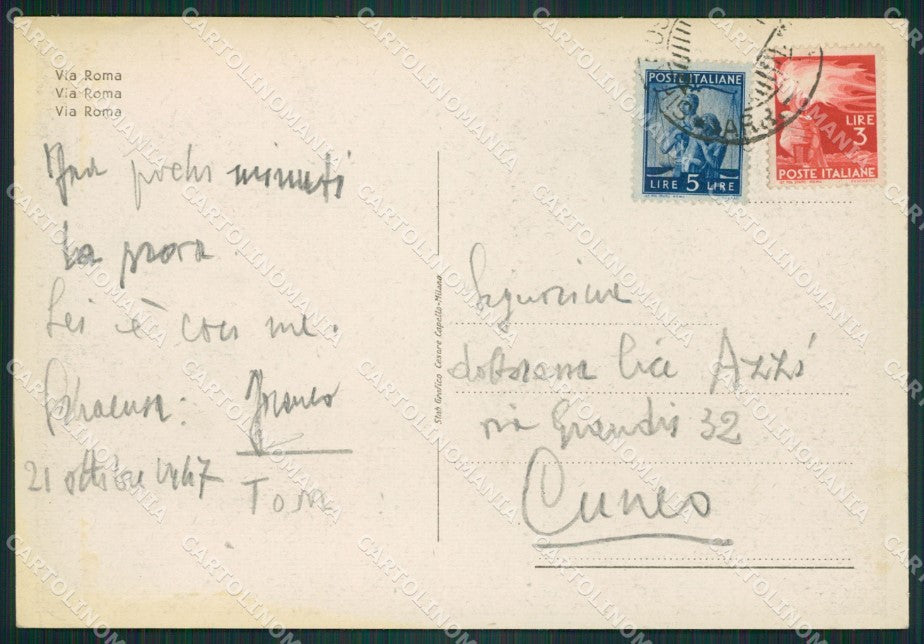 Via Roma
Via Roma
Via Roma
Fra pochi minuti
la prova
Lei è con me.
Siracusa: Franco
21 ottobre 1947
Stab Grafico Cesare Capello-Milano
POSTE ITALIANE
LIRE 5 LIRE
LIRE
3
POSTE ITALIANE
Signorina
dottoressa Azzi
via Grandis 32
Cuneo
CARTOLINOMANIA